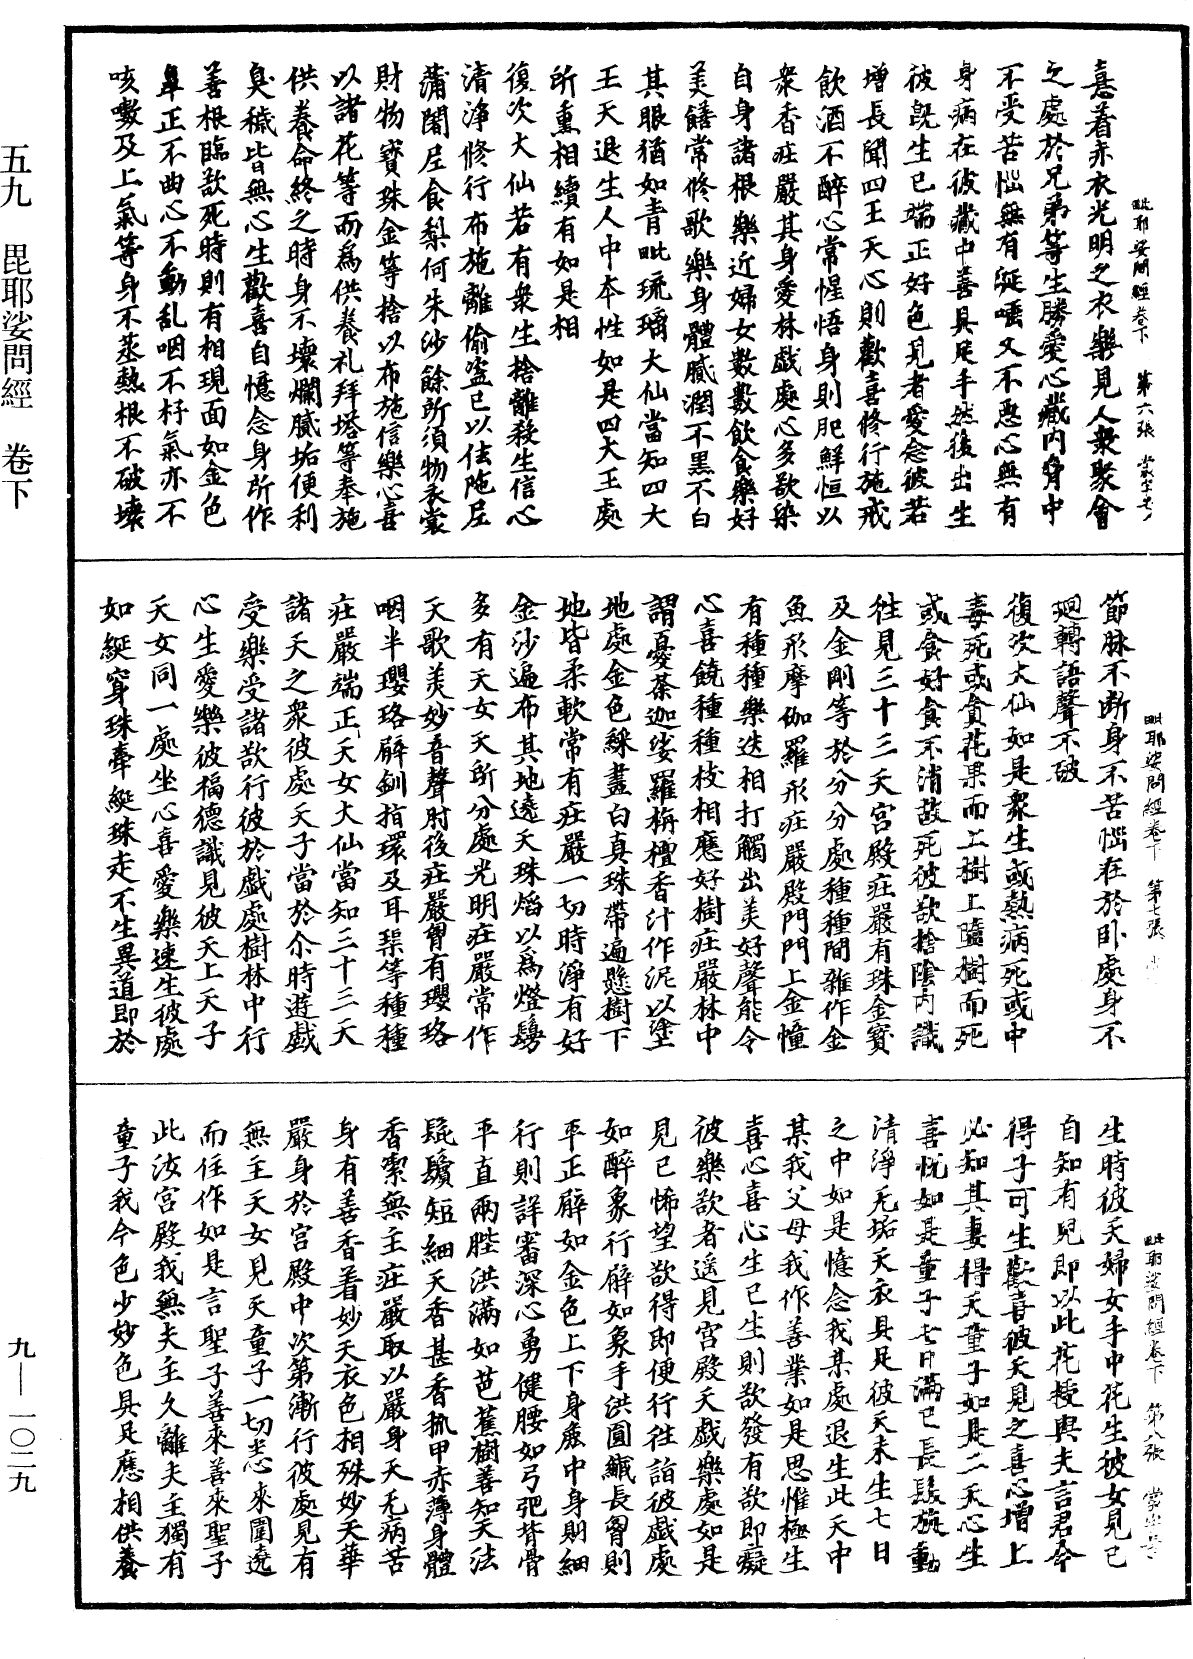 毗耶娑問經卷下　第六張　常字号
憙着赤衣光明之衣樂見人衆聚會
之處於兄弟等生勝愛心藏内身中
不受苦惱無有涎唾又不惡心無有
身病在彼藏中善具足手然後出生
彼既生已端正好色見者愛念彼若
增長聞四王天心則歡喜修行施戒
飲酒不醉心常惺悟身則肥鮮恒以
衆香莊嚴其身愛林戲處心多欲染
自身諸根樂近婦女數數飲食樂好
美饍常修歌樂身體膩潤不黑不白
其眼猶如青毗琉璃大仙當知四大
王天退生人中本性如是四大王處
所熏相續有如是相
復次大仙若有衆生捨離殺生信心
清淨修行布施離偷盗已以佉陁尼
蒲闍尼食梨何朱沙餘所須物衣裳
財物寶珠金等捨以布施信樂心喜
以諸花等而爲供養礼拜塔等奉施
供養命終之時身不壞爛膩垢便利
臭穢皆無心生歡喜自憶念身所作
善根臨欲死時則有相現面如金色
鼻正不曲心不動乱咽不抒氣亦不
咳嗽及上氣等身不蒸熱根不破壞
毗耶娑問經卷下　第七張　常
節脉不斷身不苦惱在於卧處身不
廻轉語聲不破
復次大仙如是衆生或熱病死或中
毒死或貪花果而上樹上墮樹而死
或食好食不消故死彼欲捨陰内識
往見三十三天宫殿莊嚴有珠金寶
及金剛等於分分處種種間雜作金
魚形摩伽羅形莊嚴殿門門上金幢
有種種樂迭相打觸出美好聲能令
心喜饒種種枝相應好樹莊嚴林中
謂憂荼迦娑羅栴檀香汁作泥以塗
地處金色綵畫白真珠帶遍懸樹下
地皆柔軟常有莊嚴一切時淨有好
金沙遍布其地遶天珠熖以爲燈鬘
多有天女天所分處光明莊嚴常作
天歌美妙音聲肘後莊嚴胷有瓔珞
咽半瓔珞臂釧指環及耳璖等種種
莊嚴端正天女大仙當知三十三天
諸天之衆彼處天子當於尒時遊戲
受樂受諸欲行彼於戲處樹林中行
心生愛樂彼福德識見彼天上天子
天女同一處坐心喜愛樂速生彼處
如綖穿珠牽綖珠走不生異道即於
毗耶娑問經卷下　第八張　常字号
生時彼天婦女手中花生彼女見已
自知有兒即以此花授與夫言君今
得子可生歡喜彼天見之喜心增上
必知其妻得天童子如是二天心生
喜悦如是童子七日滿已長髮旋動
清淨无垢天衣具足彼天未生七日
之中如是憶念我某處退生此天中
某我父母我作善業如是思惟極生
喜心喜心生已生則欲發有欲即癡
彼樂欲者遥見宫殿天戲樂處如是
見已悕望欲得即便行往詣彼戲處
如醉象行臂如象手洪圓纖長胷則
平正臂如金色上下身麁中身則細
行則詳審深心勇健腰如弓弝背骨
平直兩䏶洪滿如芭蕉樹善知天法
髭鬚短細天香甚香抓甲赤薄身體
香潔無主莊嚴取以嚴身天无病苦
身有善香着妙天衣色相殊妙天華
嚴身於宫殿中次第漸行彼處見有
無主天女見天童子一切悉來圍遶
而住作如是言聖子善來善來聖子
此汝宫殿我無夫主久離夫主獨有
童子我今色少妙色具足應相供養
五九　毘耶娑問經　卷下
九—一〇二九